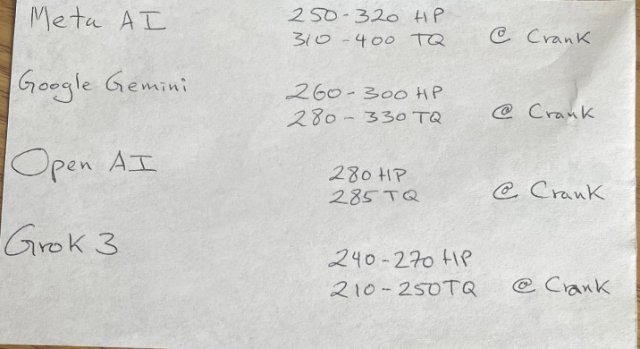 Meta AI 250-320 HP
310-400 TQ @ Crank
Google Gemini 260-300 HP
280-330 TQ @ Crank
Open AI 280 HP
285 TQ @ Crank
Grok 3 240-270 HP
210-250 TQ @ Crank